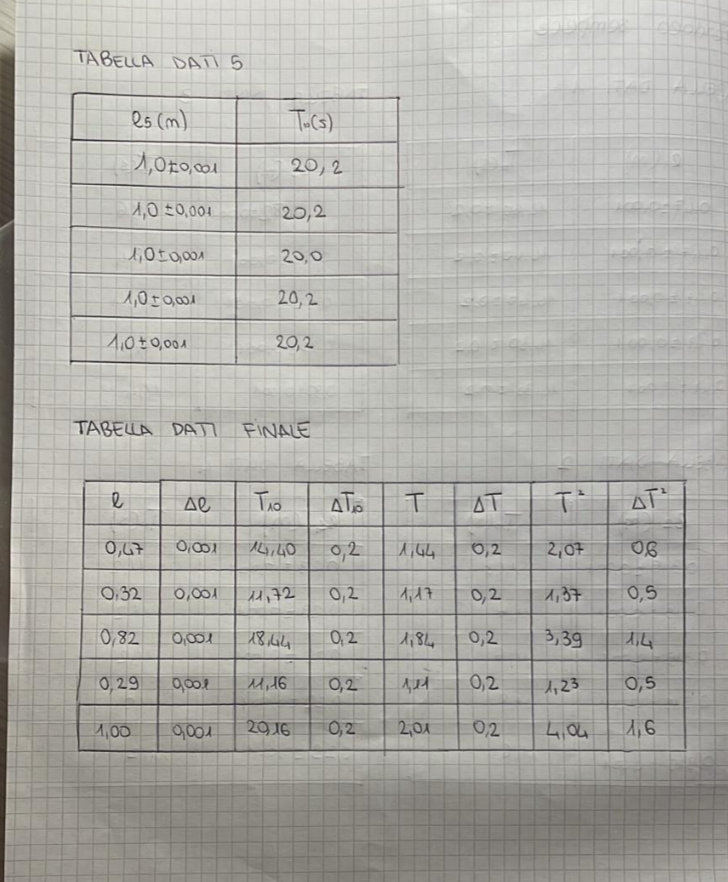 TABELLA DATI 5
l5 (m) T10(s)
1,0±0,001 20,2
1,0±0,001 20,2
1,0±0,001 20,0
1,0±0,001 20,2
1,0±0,001 20,2
TABELLA DATI FINALE
l Δl T10 ΔT10 T ΔT T² ΔT²
0,47 0,001 14,40 0,2 1,44 0,2 2,07 0,6
0,32 0,001 11,72 0,2 1,17 0,2 1,37 0,5
0,82 0,001 18,44 0,2 1,84 0,2 3,39 1,4
0,29 0,001 11,16 0,2 1,11 0,2 1,23 0,5
1,00 0,001 20,16 0,2 2,01 0,2 4,04 1,6